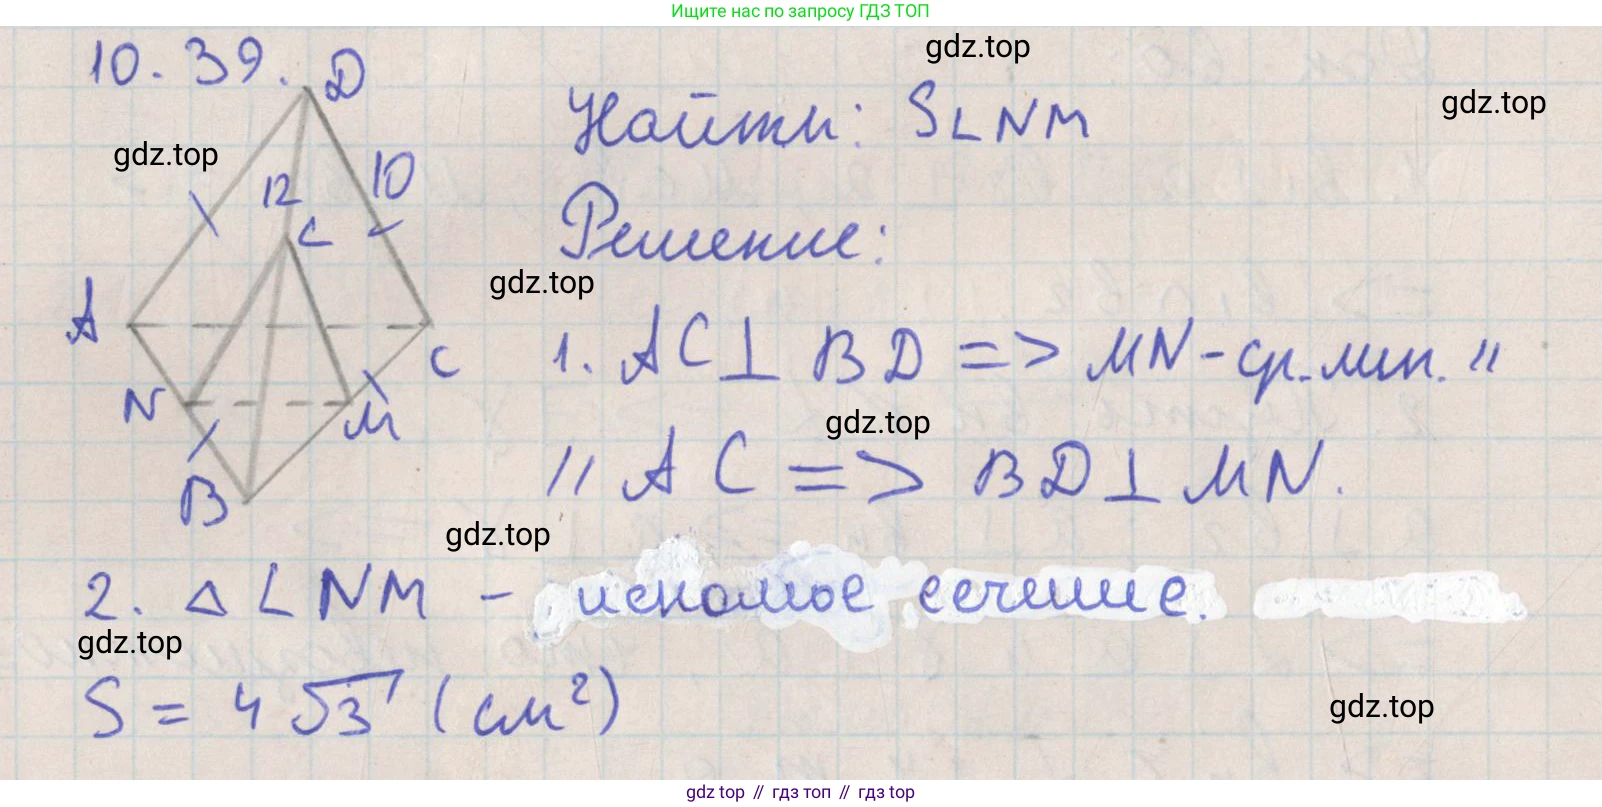 Ищите нас по запросу ГДЗ ТОП
10.39.
D
gdz.top
12
10
L
A
C
N
M
B
Найти: SLNM
gdz.top
gdz.top
Решение:
gdz.top
1. AC⊥BD => MN - ср. лин. ||
gdz.top
|| AC => BD⊥MN.
gdz.top
2. △LNM - искомое сечение.
gdz.top
S = 4√3 (см²)
gdz.top
gdz top // гдз топ // гдз top